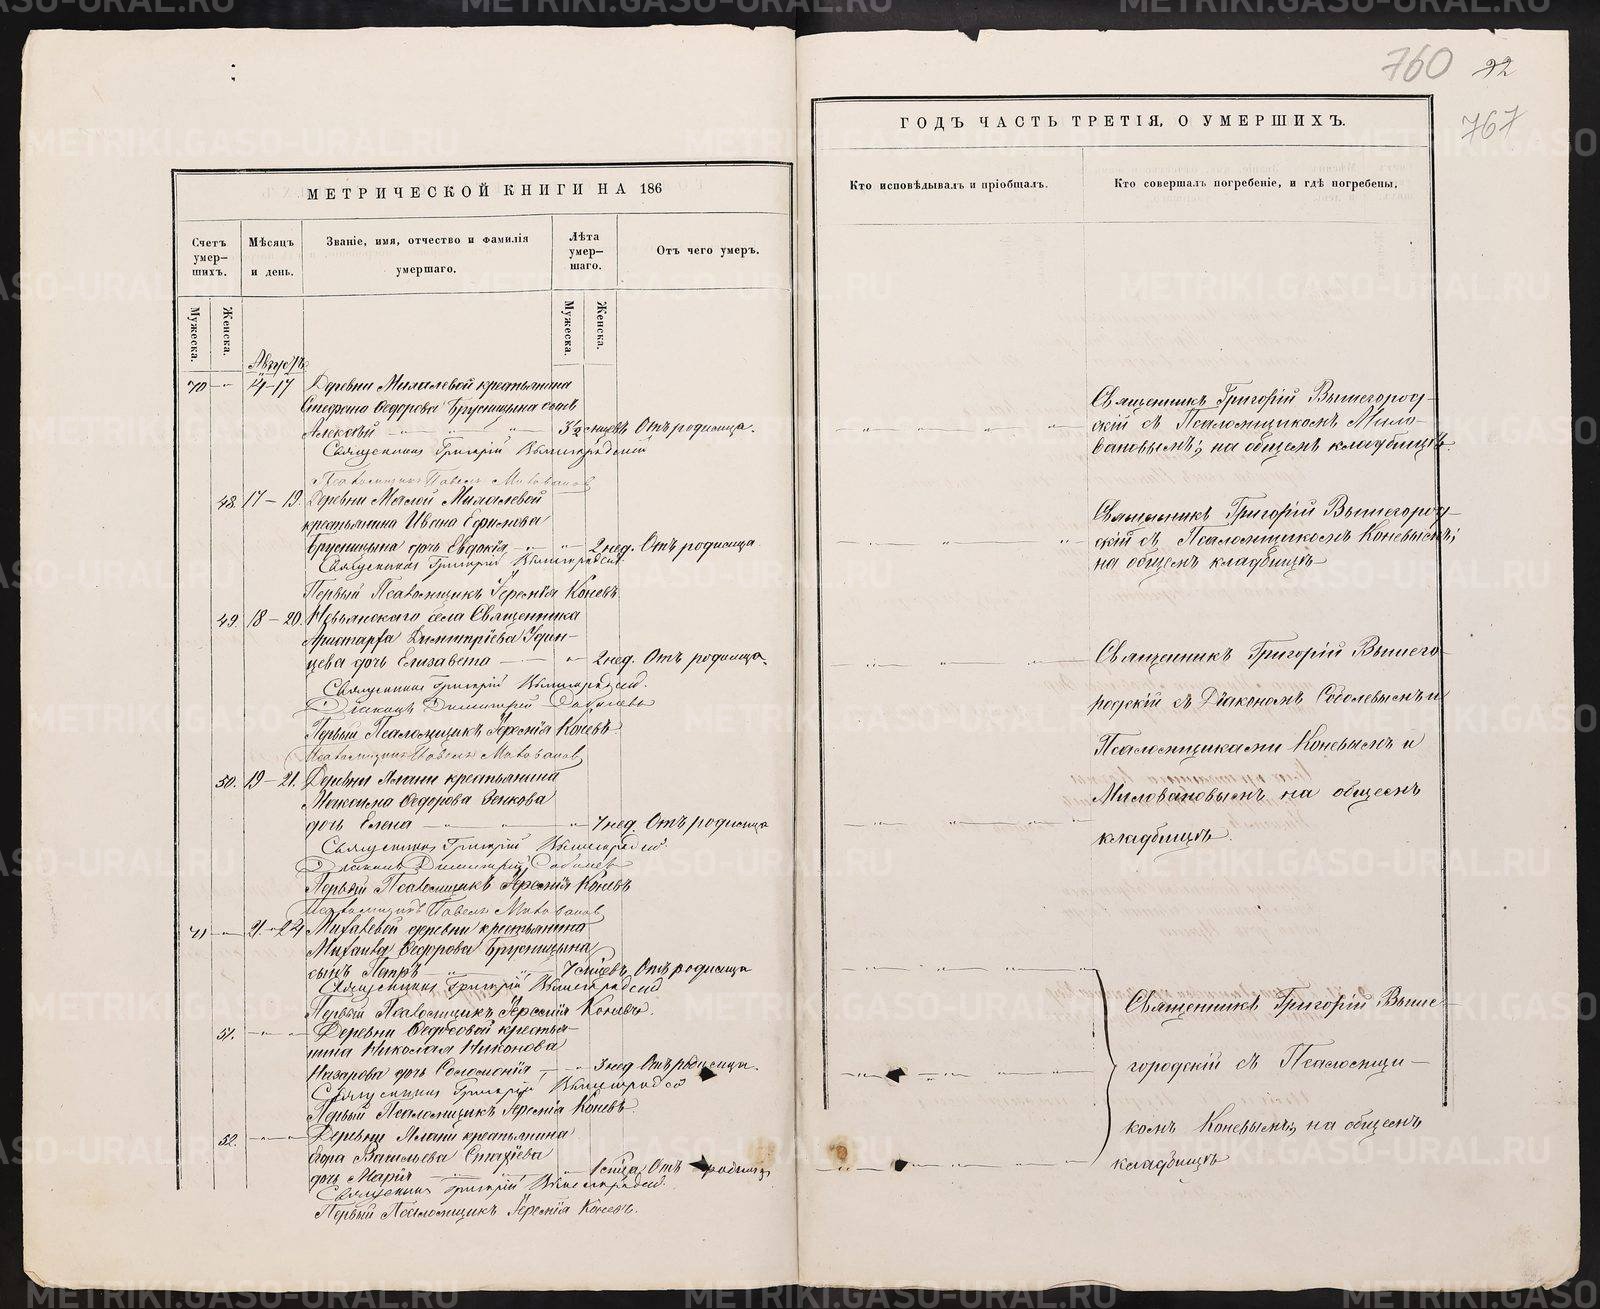 МЕТРИЧЕСКОЙ КНИГИ НА 186
Счетъ умер-шихъ.
Мѣсяцъ и день.
Званіе, имя, отчество и фамилія умершаго.
Лѣта умер-шаго.
Отъ чего умеръ.
Мужеска.
Женска.
Мужеска.
Женска.
Августъ
70 - " - 14-17 Деревни Михалевой крестьянина
Стефана Ѳедорова Брусницына сынъ
Алексѣй 3½ мцевъ Отъ родимца.
Священникъ Григорій Вышегородскій
Псаломщикъ Павелъ Миловановъ
48. 17-19. Деревни Малой Михалевой
крестьянина Ивана Ефимова
Брусницына дочь Евдокія 2 нед. Отъ родимца
Священникъ Григорій Вышегородскій
Первый Псаломщикъ Іеремія Коневъ
49. 18-20. села Священника
Аристарха Димитріева Удин-
цева дочь Елизавета " 2 нед. Отъ родимца.
Священникъ Григорій Вышегородскій.
Діаконъ Димитрій Соболевъ
Первый Псаломщикъ Іеремія Коневъ
Псаломщикъ Павелъ Миловановъ
50. 19-21. Деревни крестьянина
Максима Ѳедорова
дочь Елена " 7 нед. Отъ родимца
Священникъ Григорій Вышегородскій
Діаконъ Димитрій Соболевъ
Первый Псаломщикъ Іеремія Коневъ
Псаломщикъ Павелъ Миловановъ
71 - " - 21-24 Михалевой деревни крестьянина
Михаила Ѳедорова Брусницына
сынъ Петръ 7 мцевъ Отъ родимца
Священникъ Григорій Вышегородскій
Первый Псаломщикъ Іеремія Коневъ.
51. Деревни Ѳедосовой крестья-
нина Николая Никонова
Назарова дочь Соломонія " 3 нед Отъ родимца.
Священникъ Григорій Вышегородскій
Первый Псаломщикъ Іеремія Коневъ.
52. Деревни крестьянина
Васильева
дочь Марія " 1 мца. Отъ родимца
Священникъ Григорій Вышегородскій.
Первый Псаломщикъ Іеремія Коневъ.
760 92
767
ГОДЪ ЧАСТЬ ТРЕТІЯ, О УМЕРШИХЪ.
Кто исповѣдывалъ и пріобщалъ.
Кто совершалъ погребеніе, и гдѣ погребены.
Священникъ Григорій Вышегород-
скій съ Псаломщикомъ Мило-
вановымъ; на общемъ кладбищѣ.
Священникъ Григорій Вышегород-
скій съ Псаломщикомъ Коневымъ;
на общемъ кладбищѣ
Священникъ Григорій Вышего-
родскій съ Діакономъ Соболевымъ и
Псаломщиками Коневымъ и
Миловановымъ на общемъ
кладбищѣ.
Священникъ Григорій Выше-
городскій съ Псаломщи-
комъ Коневымъ; на общемъ
кладбищѣ
METRIKI.GASO-URAL.RU